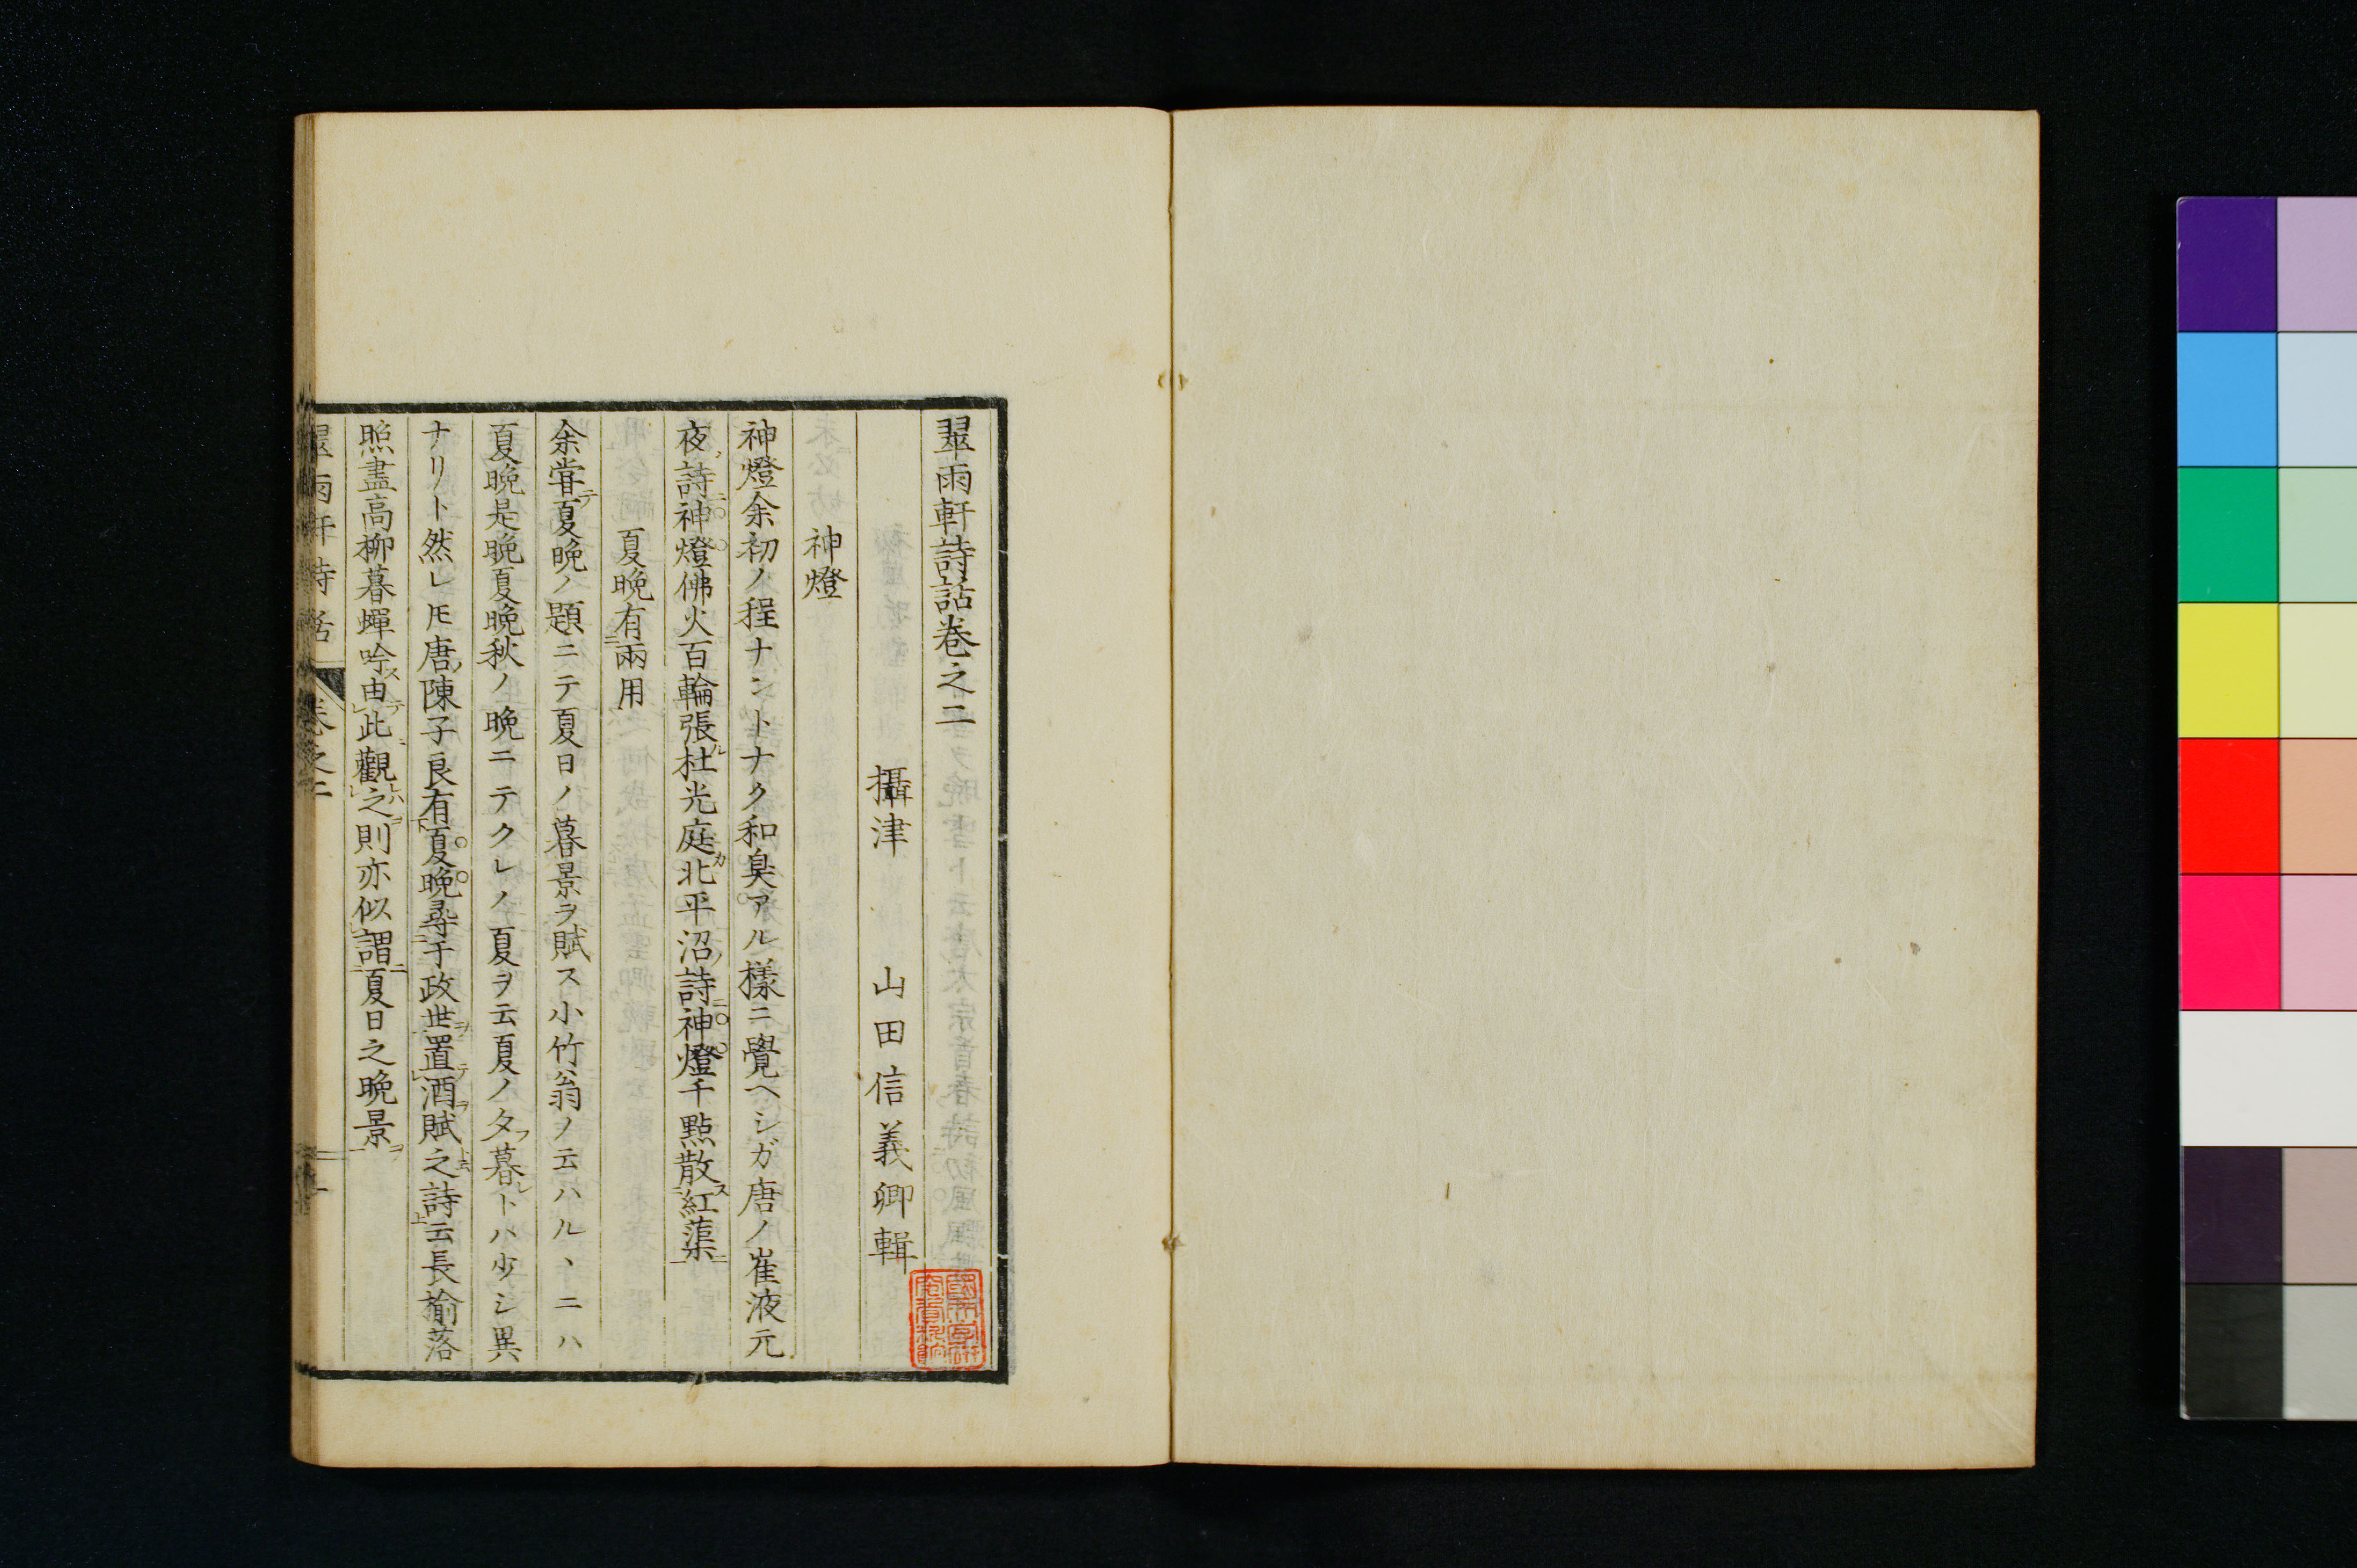 翠雨軒詩話巻之二
攝津　山田信義卿輯
神燈
神燈余初ノ程ナントナク和臭アル樣ニ覺ヘシガ唐ノ崔液元
夜ノ詩ニ神燈佛火百輪張ル杜光庭ガ北平沼ノ詩ニ神燈千點散ス紅蕖ニ
夏晩有兩用
余甞テ夏晩ノ題ニテ夏日ノ暮景ヲ賦ス小竹翁ノ云ハルヽニハ
夏晩是晩夏晩秋ノ晩ニテクレノ夏ヲ云夏ノ夕暮レトハ少シ異
ナリト然レ𪜈唐ノ陳子良有夏晩尋于政世置酒賦之詩云長揄落
照盡高柳暮蟬吟由此觀之則亦似謂夏日之晩景
翠雨軒詩話　卷之二　一